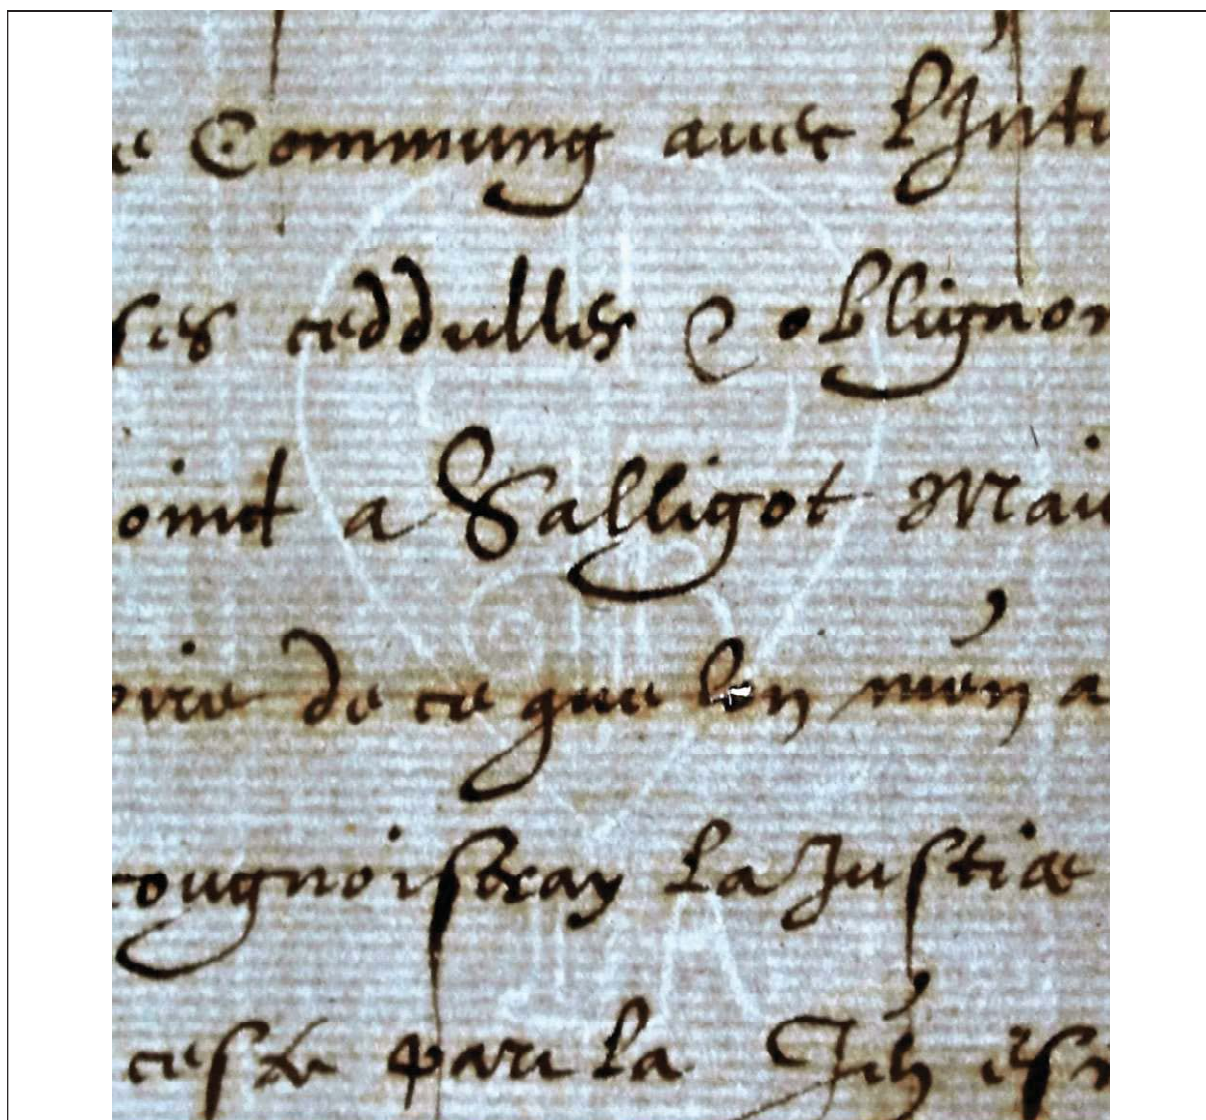 Commung avec L'Inte
ses ceddulles & obligaon
oinct a Valligot Mai
oire de ce que l'on m'en a
cougnoisseray La Justice
cesse par La